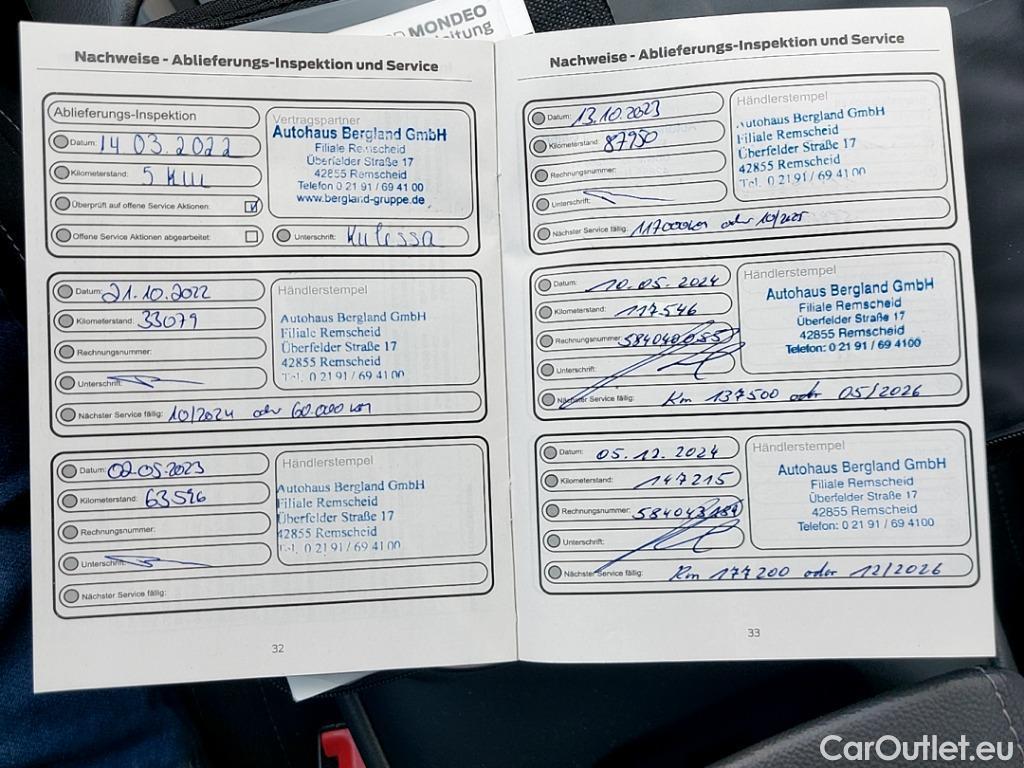 MONDEO
Nachweise - Ablieferungs-Inspektion und Service
Ablieferungs-Inspektion
Datum: 14 03.2022
Kilometerstand: 5 KM
Überprüft auf offene Service Aktionen:
Offene Service Aktionen abgearbeitet:
Vertragspartner
Autohaus Bergland GmbH
Filiale Remscheid
Überfelder Straße 17
42855 Remscheid
Telefon 0 21 91 / 69 41 00
www.bergland-gruppe.de
Unterschrift: Kulessa
Datum: 21.10.2022
Kilometerstand: 33079
Rechnungsnummer:
Unterschrift:
Nächster Service fällig: 10/2024 oder 60.000 km
Händlerstempel
Autohaus Bergland GmbH
Filiale Remscheid
Überfelder Straße 17
42855 Remscheid
Tel. 0 21 91 / 69 41 00
Datum: 02.05.2023
Kilometerstand: 63596
Rechnungsnummer:
Unterschrift:
Nächster Service fällig:
Händlerstempel
Autohaus Bergland GmbH
Filiale Remscheid
Überfelder Straße 17
42855 Remscheid
Tel. 0 21 91 / 69 41 00
32
Nachweise - Ablieferungs-Inspektion und Service
Datum: 13.10.2023
Kilometerstand: 87950
Rechnungsnummer:
Unterschrift:
Nächster Service fällig: 117000km oder 10/2025
Händlerstempel
Autohaus Bergland GmbH
Filiale Remscheid
Überfelder Straße 17
42855 Remscheid
Tel. 0 21 91 / 69 41 00
Datum: 10.05.2024
Kilometerstand: 117546
Rechnungsnummer: 584040055
Unterschrift:
Nächster Service fällig: Km 137500 oder 05/2026
Händlerstempel
Autohaus Bergland GmbH
Filiale Remscheid
Überfelder Straße 17
42855 Remscheid
Telefon: 0 21 91 / 69 4100
Datum: 05.12.2024
Kilometerstand: 147215
Rechnungsnummer: 584043189
Unterschrift:
Nächster Service fällig: Km 177200 oder 12/2026
Händlerstempel
Autohaus Bergland GmbH
Filiale Remscheid
Überfelder Straße 17
42855 Remscheid
Telefon: 0 21 91 / 69 4100
33
CarOutlet.eu